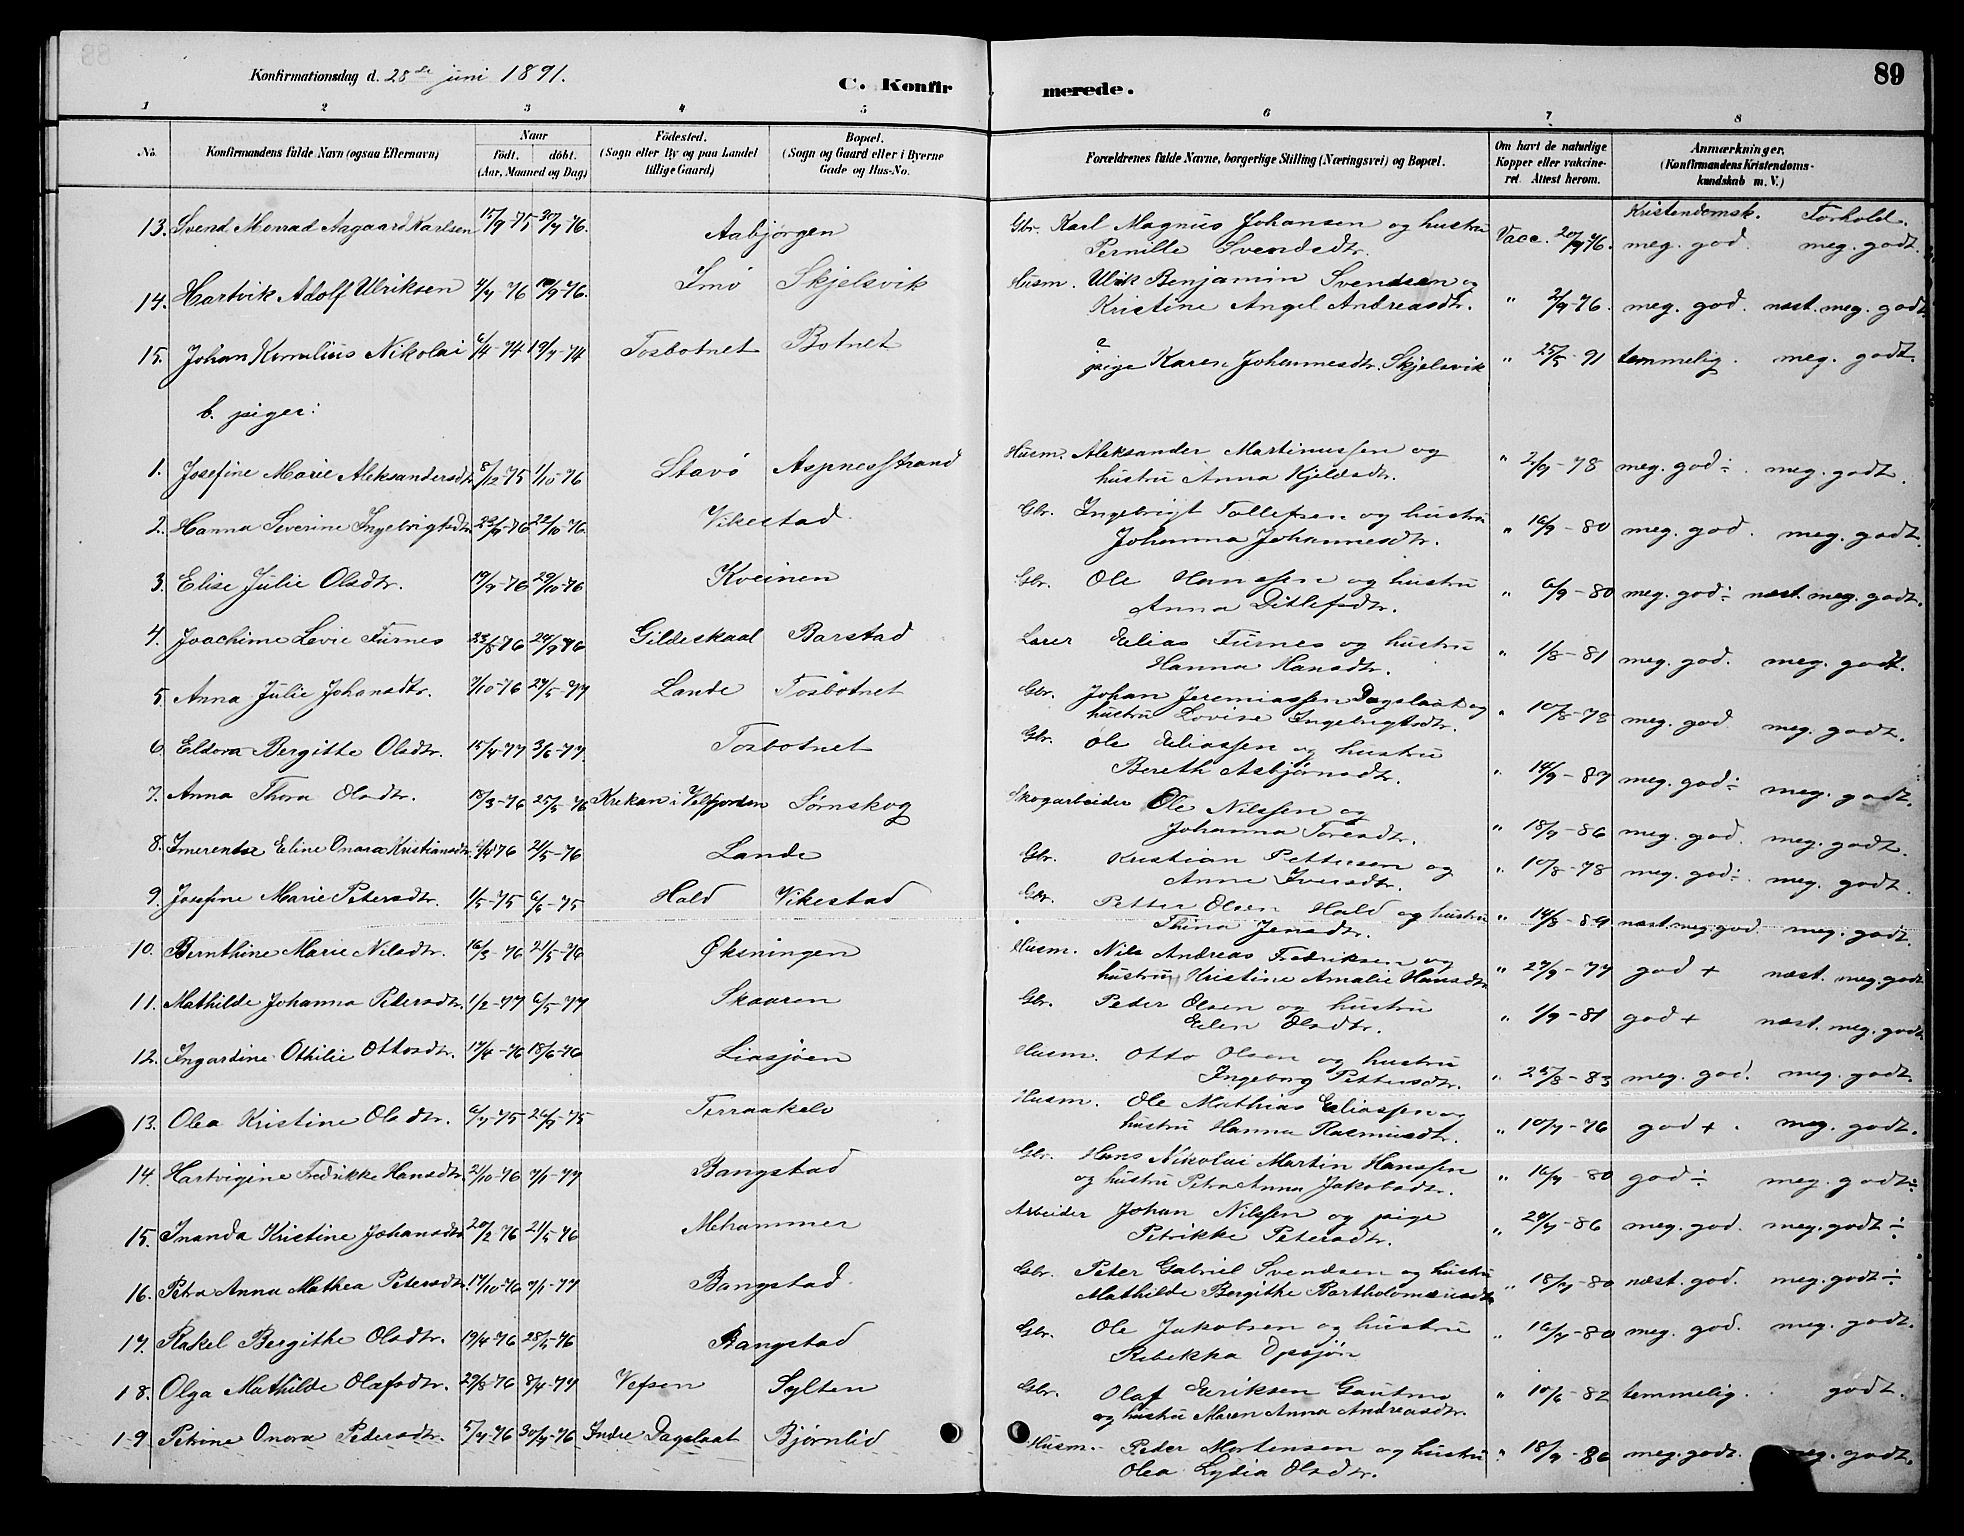 Konfirmationsdag d. 28de juni 1891.
C. Konfirmerede.
89
1 2 3 4 5 6 7 8
No. Konfirmandens fulde Navn (ogsaa Efternavn) Naar födt. döbt. (Aar, Maaned og Dag) Födested. (Sogn eller By og paa Landet tillige Gaard) Bopæl. (Sogn og Gaard eller i Byerne Gade og Hus-No. Forældrenes fulde Navne, borgerlige Stilling (Næringsvei) og Bopæl. Om havt de naturlige Kopper eller vakcineret. Attest herom. Anmærkninger. (Konfirmandens Kristendomskundskab m. V.)
Kristendomsk. Forhold.
13. Svend Monrad Aagaard Karlsen 15/9-75 30/7-76. Aabjørgen Gbr. Karl Magnus Johansen og hustru Pernille Svendsdtr. Vacc. 20/9 76. meg. god. meg. godt.
14. Hartvik Adolf Ulriksen 4/7 76 /9-76. Imø Skjelsvik Husm. Ulrik Benjamin Svendsen og Kristine Angel Andreasdtr. " 2/9-76. meg. god. næst. meg. godt.
15. Johan Kornelius Nikolai 6/4-74 19/7-74 Tosbotnet Botnet e pige Karen Johannesdtr. Skjelsvik " 25/5-91 temmelig. meg. godt.
b. piger:
1. Josefine Marie Aleksandersdtr. 8/12-75 1/10-76 Stavø Aspnesstrand Husm. Aleksander Martinussen og hustru Anna Kjeldsdtr. " 2/9-78 meg. god÷. meg. godt.
2. Hanna Severine Ingebrigtsdtr. 23/9-76 22/10-76 Vikestad Gbr. Ingebrigt Tollefsen og hustru Johanna Johannesdtr. " 16/9-80 meg. god. meg. godt.
3. Elise Julie Olsdtr. 19/9-76 29/10-76 Kveinen Gbr. Ole Hanssen og hustru Anna Ditlefsdtr. " 6/9-80 meg. god÷ næst. meg. godt.
4. Joachime Levie Furnes 23/8-76 24/9 76 Gildeskaal Barstad Lærer Elias Furnes og hustru Hanna Hansdtr. " 1/8-81 meg. god. meg. godt.
5. Anna Julie Johansdtr. 7/10-76 27/5-77 Lande Tosbotnet Gbr. Johan Jeremiassen Dagslaat og hustru Lovise Ingebrigtsdtr. " 10/8-78 meg. god meg. godt.
6. Eldora Bergitte Olsdtr. 15/4-77 3/6-77. Tosbotnet Gbr. Ole Eliassen og hustru Bereth Asbjørnsdtr. " 14/9-87 meg. god÷ meg. godt.
7. Anna Thora Olsdtr. 18/3-76 25/5-76 Krekan i Velfjorden Sørnskog Skogarbeider Ole Nilssen og Johanna Toresdtr. " 18/9-86 meg. god. meg. godt.
8. Imerentse Eline Onara Kristiansdtr. 4/4 76 21/5-76 Lande Gbr. Kristian Pettersen og Anne Iversdtr. " 10/8-78 meg. god÷. meg. godt.
9. Josefine Marie Petersdtr. 1/5-75 6/6-75 Hald Vikestad Gbr. Petter Olsen Hald og hustru Thina Jensdtr. " 14/8-89 næst. meg. god. meg. godt.
10. Bernthine Marie Nilsdtr. 16/3-76 21/5-76 Øksningen Husm. Nils Andreas Fredriksen og hustru Kristine Amalie Hansdtr " 27/9-77 god + næst. meg. godt
11. Mathilde Johanna Petersdtr. 1/2-77 6/5-77 Skaaren Gbr. Peder Olsen og hustru Elen Olsdtr. " 1/9-81 god + næst. meg. godt
12. Ingardine Othilie Ottosdtr. 17/4-76 18/6-76 Liasjøen Husm. Otto Olsen og hustru Ingeborg Pettersdtr. " 25/8-83 meg. god. meg. godt.
13. Olea Kristine Olsdtr. 6/7-75 26/9-75 Terraakelv Husm. Ole Mathias Eliassen og hustru Hanna Rasmusdtr. " 10/7-76 god +. meg. godt.
14. Hartvigine Fredrikke Hansdtr. 2/10-76 7/1-77 Bangstad Gbr. Hans Nikolai Martin Hanssen og hustru Petra Anna Jakobsdtr. " 16/9-80 god÷ meg. godt÷
15. Inanda Kristine Johansdtr 20/2-76 21/5-76 Mehammer Arbeider Johan Nilssen og pige Petrikke Petersdtr. " 24/7-86 meg. god. meg. godt÷
16. Petra Anna Mathea Petersdtr. 17/10-76 7/1-77 Bangstad Gbr. Peter Gabriel Svendsen og hustru Mathilde Bergithe Bartholomæusdtr " 18/9-80 næst. god. meg. godt÷
17. Rakel Bergithe Olsdtr. 19/4-76 28/5-76 Bangstad Gbr. Ole Jakobsen og hustru Rebekka Opsjön " 16/7-80 meg. god. meg. godt.
18. Olga Mathilde Olafsdtr. 29/8-76 8/4-77 Vefsen Sylten Gbr. Olaf Eriksen Gautmo og hustru Maren Anna Andreasdtr. " 10/6-82 temmelig. godt.
19 Petrine Onora Pedersdtr. 5/7-76 30/7-76 Indre Dagslaat Bjørnlid Husm. Peder Mortensen og hustru Olea Lydia Olsdtr. " 18/9-86 meg. godt. meg. godt.